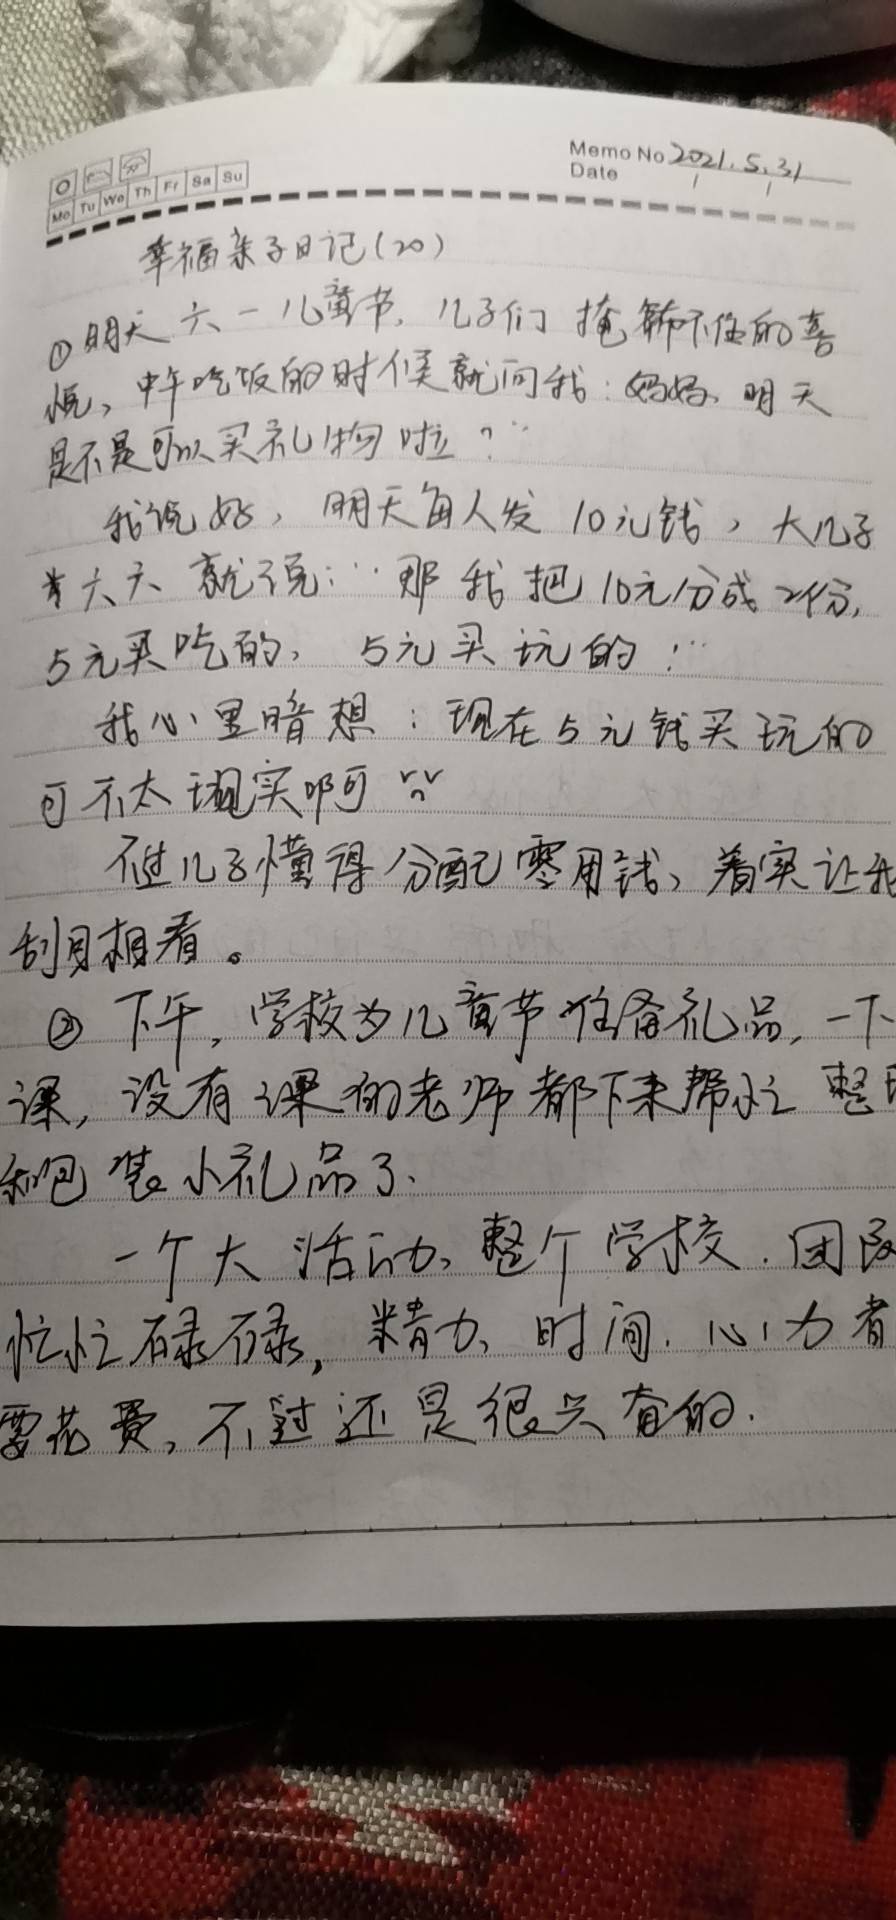 Memo No 2021.5.31
Date
Mo Tu We Th Fr Sa Su
幸福亲子日记(20)
①明天六一儿童节,儿子们掩饰不住的喜
悦,中午吃饭的时候就问我:妈妈,明天
是不是可以买礼物啦?"
我说好,明天每人发10元钱,大儿子
六六就说:"那我把10元分成2份,
5元买吃的,5元买玩的!"
我心里暗想:现在5元钱买玩的
可不太现实啊
不过儿子懂得分配零用钱,着实让我
刮目相看。
②下午,学校为儿童节准备礼品,一下
课,没有课的老师都下来帮忙整
和包装小礼品了.
一个大活动,整个学校.团队
忙忙碌碌,精力,时间,心力者
要花费,不过还是很兴奋的.